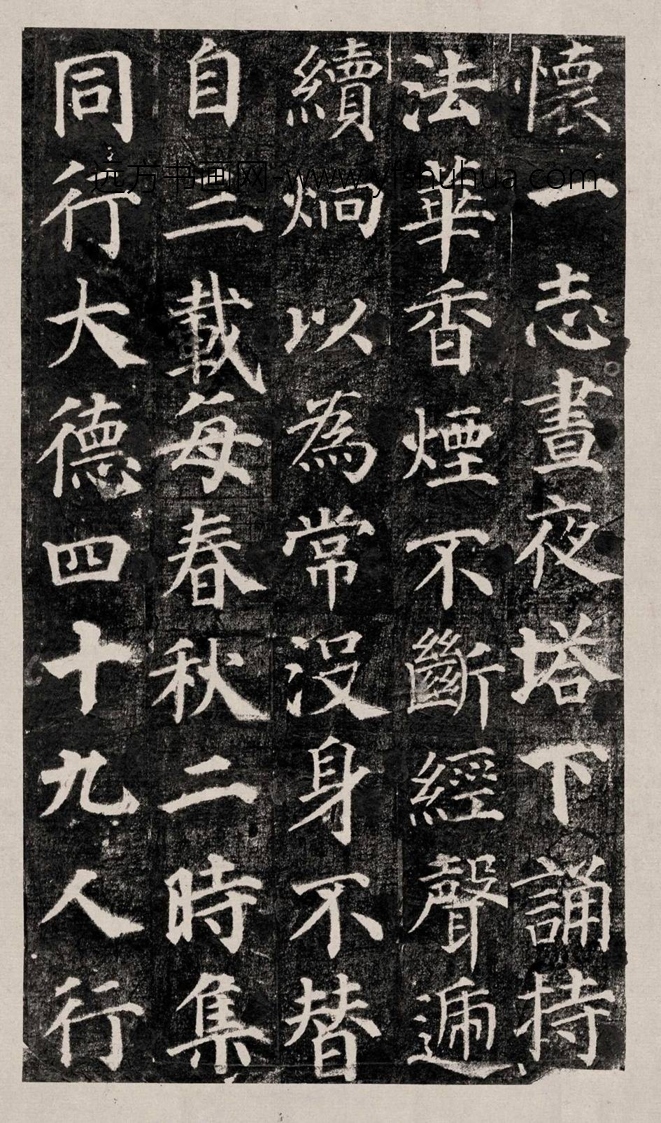 懷一志晝夜塔下誦持
法華香煙不斷經聲遞
續炯以為常沒身不替
自二載每春秋二時集
同行大德四十九人行
远方书画网-www.yfshuhua.com